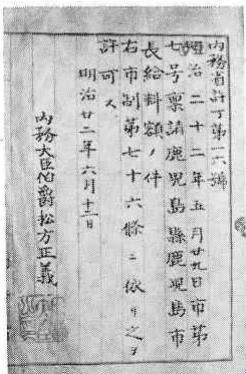 内務省許丁第一六號
明治二十二年五月廿九日市第
七号稟請鹿児島縣鹿児島市
長給料額ノ件
右市制第七十六條ニ依リ之ヲ
許可ス
明治廿二年六月十二日
内務大臣伯爵松方正義